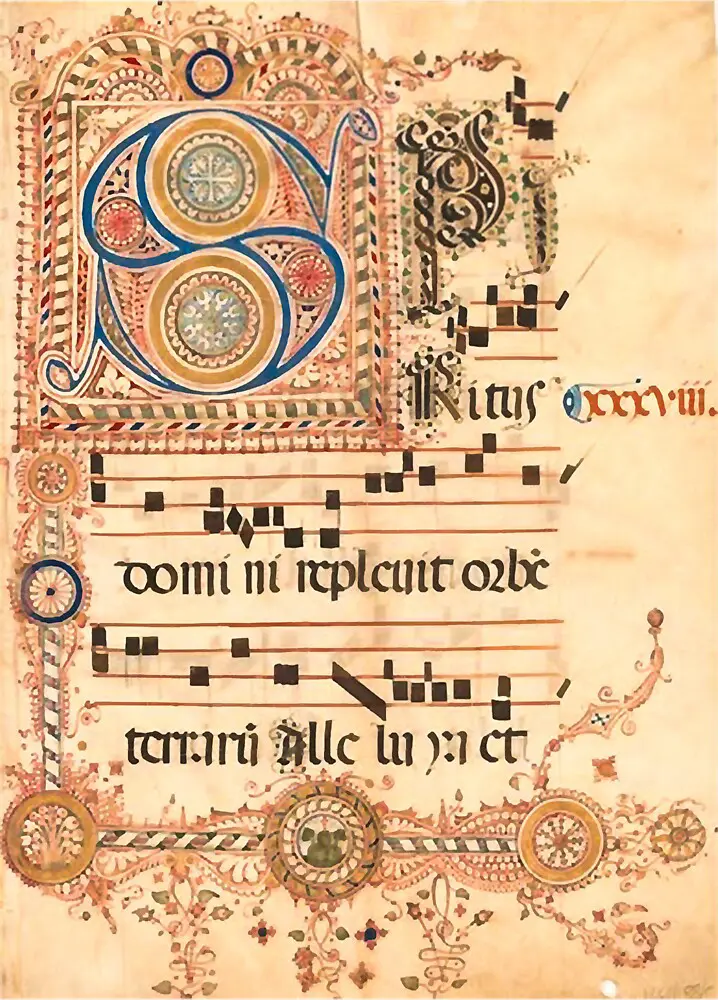 SPiritus xxxviii.
domi ni replevit orbē
terrarū Alle lu ya et